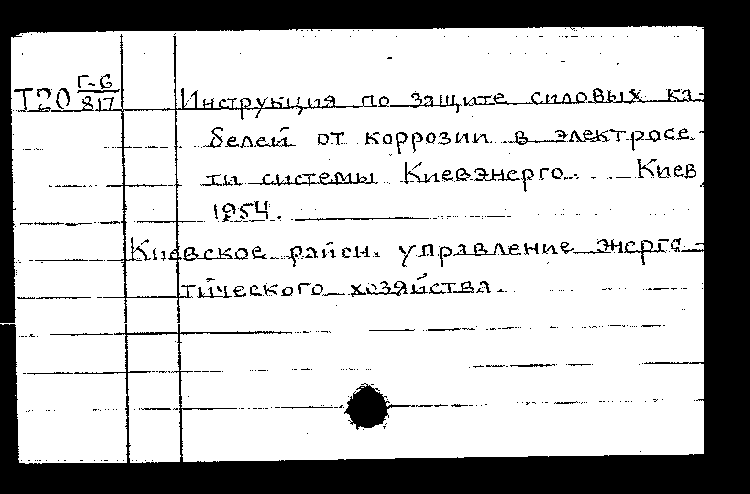 Т20 Г-6/817 Инструкция по защите силовых ка-
белей от коррозии в электросе-
ти системы Киевэнерго. Киев,
1954.
Киевское район. управление энерге-
тического хозяйства.